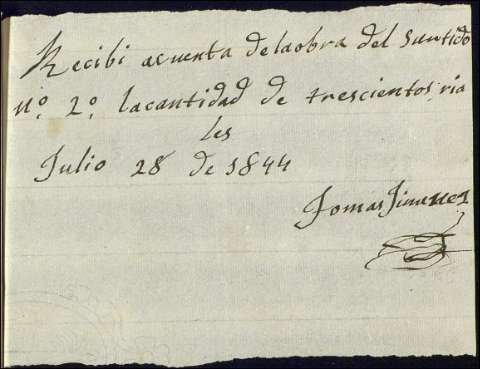 Recibi acuenta delaobra del Suntido
nº. 2º. lacantidad de trescientos, ria
les
Julio 28 de 1844
Tomas Jimenez